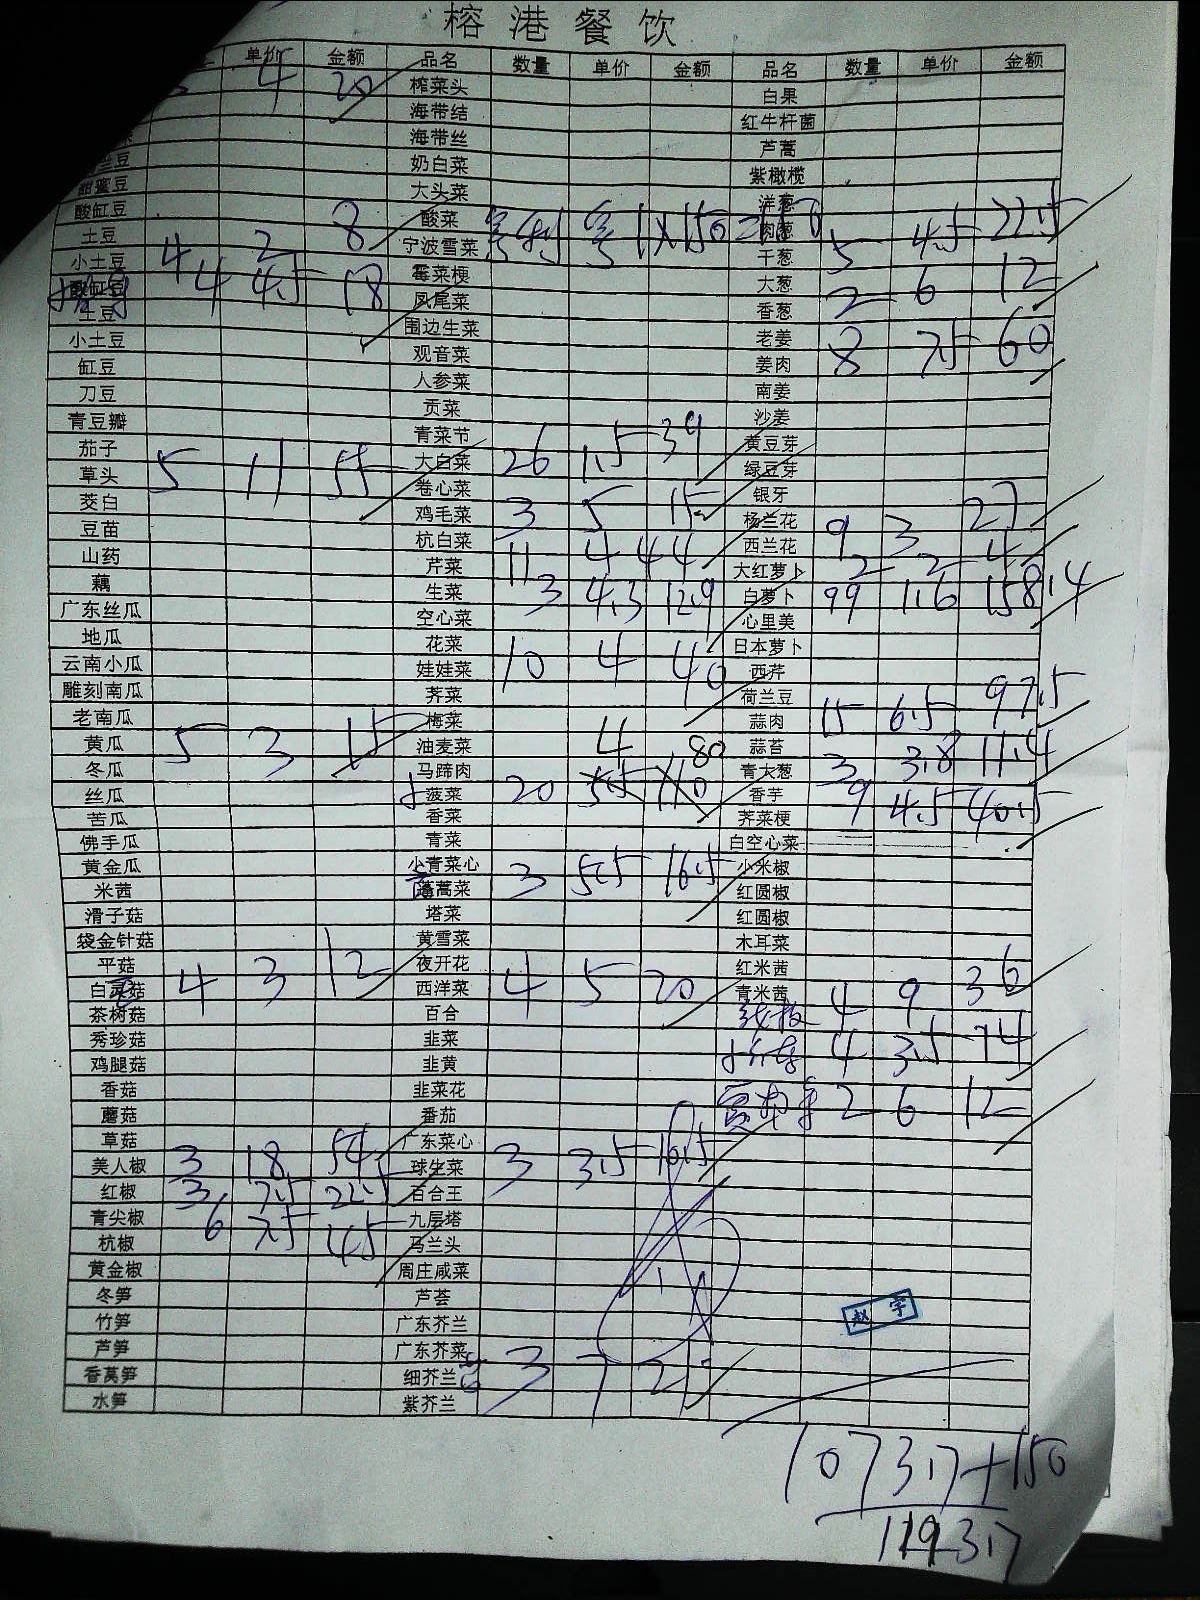 榕港餐饮
单价 金额 品名 数量 单价 金额 品名 数量 单价 金额
4 20 榨菜头 白果
海带结 红牛杆菌
海带丝 芦蒿
兰豆 奶白菜 紫橄榄
甜蜜豆 大头菜 洋葱
酸缸豆 酸菜 肉葱 5 4.5 22.5
土豆 4 2 8 宁波雪菜 干葱
小土豆 霉菜梗 大葱 2 6 12
4 4.5 18 凤尾菜 香葱
土豆 围边生菜 老姜 8 7.5 60
小土豆 观音菜 姜肉
缸豆 人参菜 南姜
刀豆 贡菜 沙姜
青豆瓣 青菜节 黄豆芽
茄子 大白菜 26 1.5 39 绿豆芽
草头 5 11 55 卷心菜 银牙
茭白 鸡毛菜 3 5 15 杨兰花 9 3 27
豆苗 杭白菜 西兰花
山药 芹菜 11 4 44 大红萝卜 2 2 4
藕 生菜 3 4.3 12.9 白萝卜 99 1.6 158.4
广东丝瓜 空心菜 心里美
地瓜 花菜 日本萝卜
云南小瓜 娃娃菜 10 4 40 西芹
雕刻南瓜 荠菜 荷兰豆
老南瓜 梅菜 蒜肉 15 6.5 97.5
黄瓜 5 3 15 油麦菜 4 80 蒜苔
冬瓜 马蹄肉 青大葱 3 3.8 11.4
丝瓜 菠菜 20 5.5 110 香芋 9 4.5 40.5
苦瓜 香菜 荠菜梗
佛手瓜 青菜 白空心菜
黄金瓜 小青菜心 小米椒
米茜 蒿菜 3 5.5 16.5 红圆椒
滑子菇 塔菜 红圆椒
袋金针菇 黄雪菜 木耳菜
平菇 夜开花 红米茜
白灵菇 4 3 12 西洋菜 4 5 20 青米茜 4 9 36
茶树菇 百合
秀珍菇 韭菜 4 3.5 14
鸡腿菇 韭黄
香菇 韭菜花 2 6 12
蘑菇 番茄
草菇 广东菜心
美人椒 3 18 54 球生菜 3 3.5 16.5
红椒 3 7.5 22.5 百合王
青尖椒 6 7.5 45 九层塔
杭椒 马兰头
黄金椒 周庄咸菜
冬笋 芦荟
竹笋 广东芥兰
芦笋 广东芥菜
香莴笋 细芥兰 3 7 21
水笋 紫芥兰
赵宇
1073.7+150